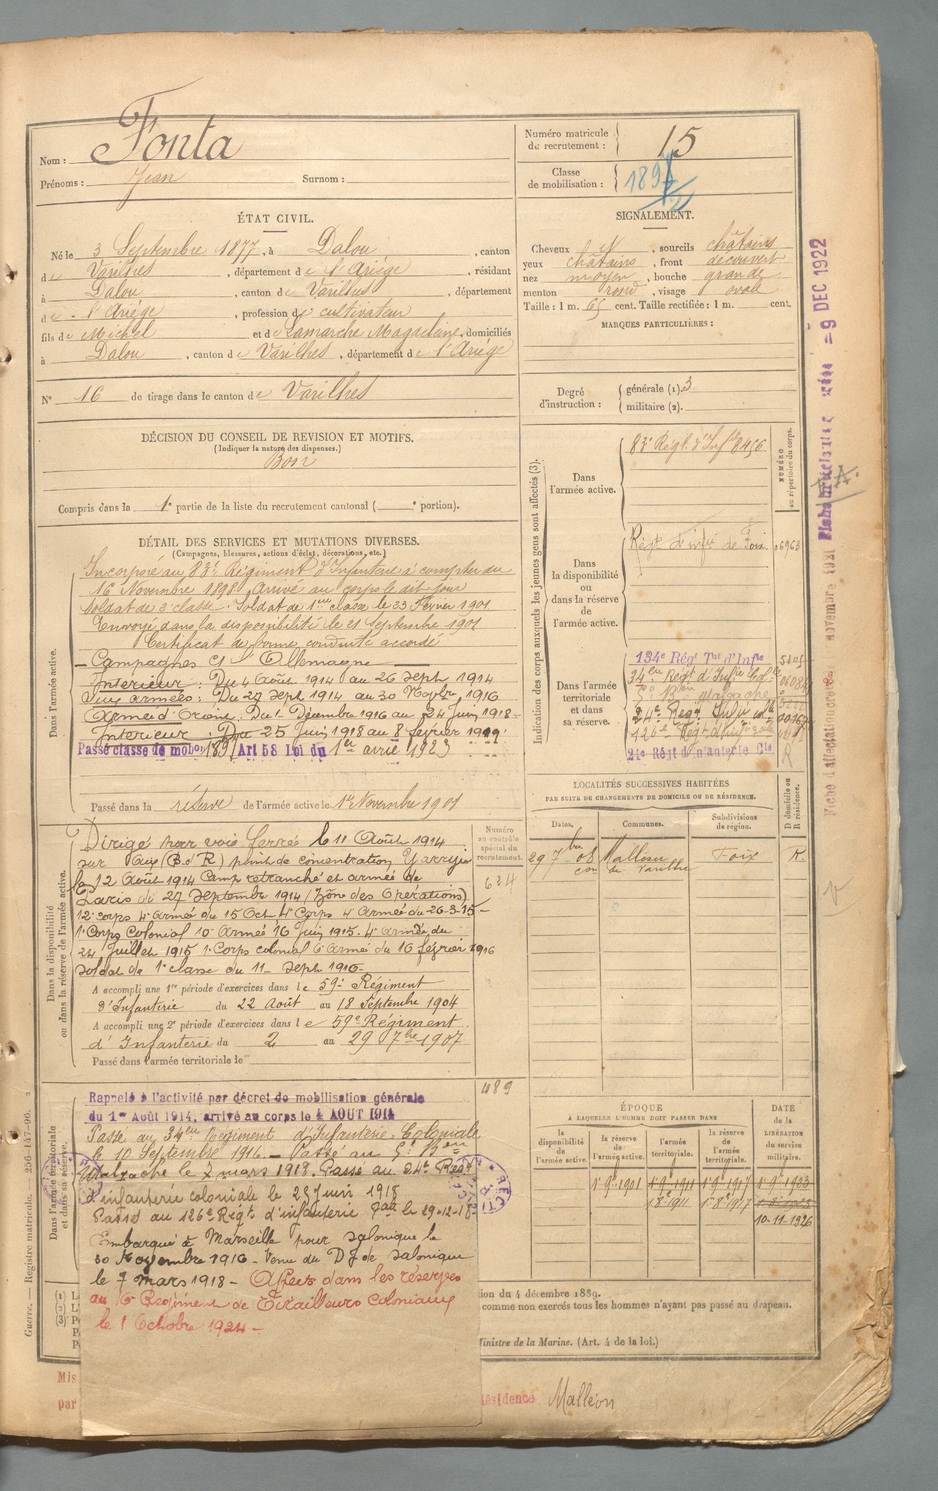 Nom : Fonta
Prénoms : Jean Surnom :
Numéro matricule du recrutement : 15
Classe de mobilisation : 189
ÉTAT CIVIL.
Né le 3 Septembre 1877, à Dalou, canton
de Varilhes, département de l'Ariège, résidant
à Dalou, canton de Varilhes, département
de l'Ariège, profession de cultivateur
fils de Michel et de Lamarche Magdelaine, domiciliés
à Dalou, canton de Varilhes, département de l'Ariège
N° 16 de tirage dans le canton de Varilhes
SIGNALEMENT.
Cheveux N, sourcils châtains
yeux châtains, front découvert
nez moyen, bouche grande
menton rond, visage oval
Taille : 1 m. 65 cent. Taille rectifiée : 1 m. cent.
MARQUES PARTICULIÈRES :
Degré d'instruction : générale (1). 3
militaire (2).
DÉCISION DU CONSEIL DE REVISION ET MOTIFS.
(Indiquer la nature des dispenses.)
Bon
Compris dans la 1e partie de la liste du recrutement cantonal ( e portion).
DÉTAIL DES SERVICES ET MUTATIONS DIVERSES.
(Campagnes, blessures, actions d'éclat, décorations, etc.)
Dans l'armée active.
Incorporé au 83e Régiment d'Infanterie à compter du
16 Novembre 1898, Arrivé au corps le dit jour
Soldat de 2e classe. Soldat de 1ere classe le 23 Février 1901
Envoyé dans la disponibilité le 21 Septembre 1901
Certificat de bonne conduite accordé
Campagnes Ct l'Allemagne
Intérieur : Du 4 Août 1914 au 26 Sept 1914
Aux armées : Du 27 Sept 1914 au 30 Novbre 1916
Armée d'Orient, Du 1 Décembre 1916 au 24 Juin 1918
Intérieur : Du 25 Juin 1918 au 8 février 1919
Passé classe de mobon 189 (Art 58 Loi du 1er avril 1923
Passé dans la réserve de l'armée active le 1er Novembre 1901
Indication des corps auxquels les jeunes gens sont affectés (3).
NUMÉRO au répertoire du corps.
Dans l'armée active.
83e Régt d'Inf 8456
Dans la disponibilité ou dans la réserve de l'armée active.
Régt d'Infie de Foix 06963
Dans l'armée territoriale et dans sa réserve.
134e Régt Tal d'Infie
34e Régt d'Infie Colle
5e Bon malgache
24e Regt Infie Colle
126e Régt d'Inf
24e Régt d'Infanterie Cle
LOCALITÉS SUCCESSIVES HABITÉES
PAR SUITE DE CHANGEMENTS DE DOMICILE OU DE RÉSIDENCE.
Dates. Communes. Subdivisions de région. D domicile ou R résidence.
29 7bre 08 Malleon Foix R.
con de Varilhes
Dans la disponibilité ou dans la réserve de l'armée active.
Numéro au contrôle spécial du recrutement.
624
Dirigé par voie ferrée le 11 Août 1914
sur Gap (B. d R) point de concentration Y arrivé
le 12 Août 1914 Camp retranché et armée de
Paris du 27 Septembre 1914 (Zone des Opérations)
12e corps 4e Armée du 15 Oct 4e Corps 4e Armée du 26-3-15
1e Corps Colonial 10e Armée 16 Juin 1915. 4e Armée du
24 Juillet 1915 1e Corps colonial 6e Armée du 16 février 1916
Soldat de 1e classe du 11 Sept 1916
A accompli une 1re période d'exercices dans le 59e Régiment
d'Infanterie du 22 Août au 18 Septembre 1904
A accompli une 2e période d'exercices dans le 59e Régiment
d'Infanterie du 2 au 29 7bre 1907
Passé dans l'armée territoriale le
Dans l'armée territoriale et dans sa réserve.
489
Rappelé à l'activité par décret de mobilisation générale
du 1er Août 1914, arrivé au corps le 4 AOUT 1914
Passé au 34eme Régiment d'Infanterie Coloniale
le 10 Septembre 1916 — Passé au 5e Bon
Malgache le 7 mars 1918. Passé au 24e Régt
d'infanterie coloniale le 25 Juin 1918
Passé au 126e Régt d'infanterie le 29-12-18
Embarqué à Marseille pour Salonique le
30 Novembre 1916 - Venu du D I de Salonique
le 7 mars 1918 — Affecté dans les réserves
au 6e Regiment de Tirailleurs Coloniaux
le 1 Octobre 1924 —
ÉPOQUE
A LAQUELLE L'HOMME DOIT PASSER DANS
DATE DE LA LIBÉRATION DU SERVICE militaire.
la disponibilité de l'armée active. la réserve de l'armée active. l'armée territoriale. la réserve de l'armée territoriale.
1er 9bre 1901 1er 9bre 1911 1er 9bre 1917 1er 9bre 1923
1er 8 1911 1er 8 1917
10-11-1926
tion du 4 décembre 1889.
comme non exercés tous les hommes n'ayant pas passé au drapeau.
Ministre de la Marine. (Art. 4 de la loi.)
Mis
par
Résidence Malléon
Guerre. — Registre matricule. 256-147-96.
= 9 DEC 1922